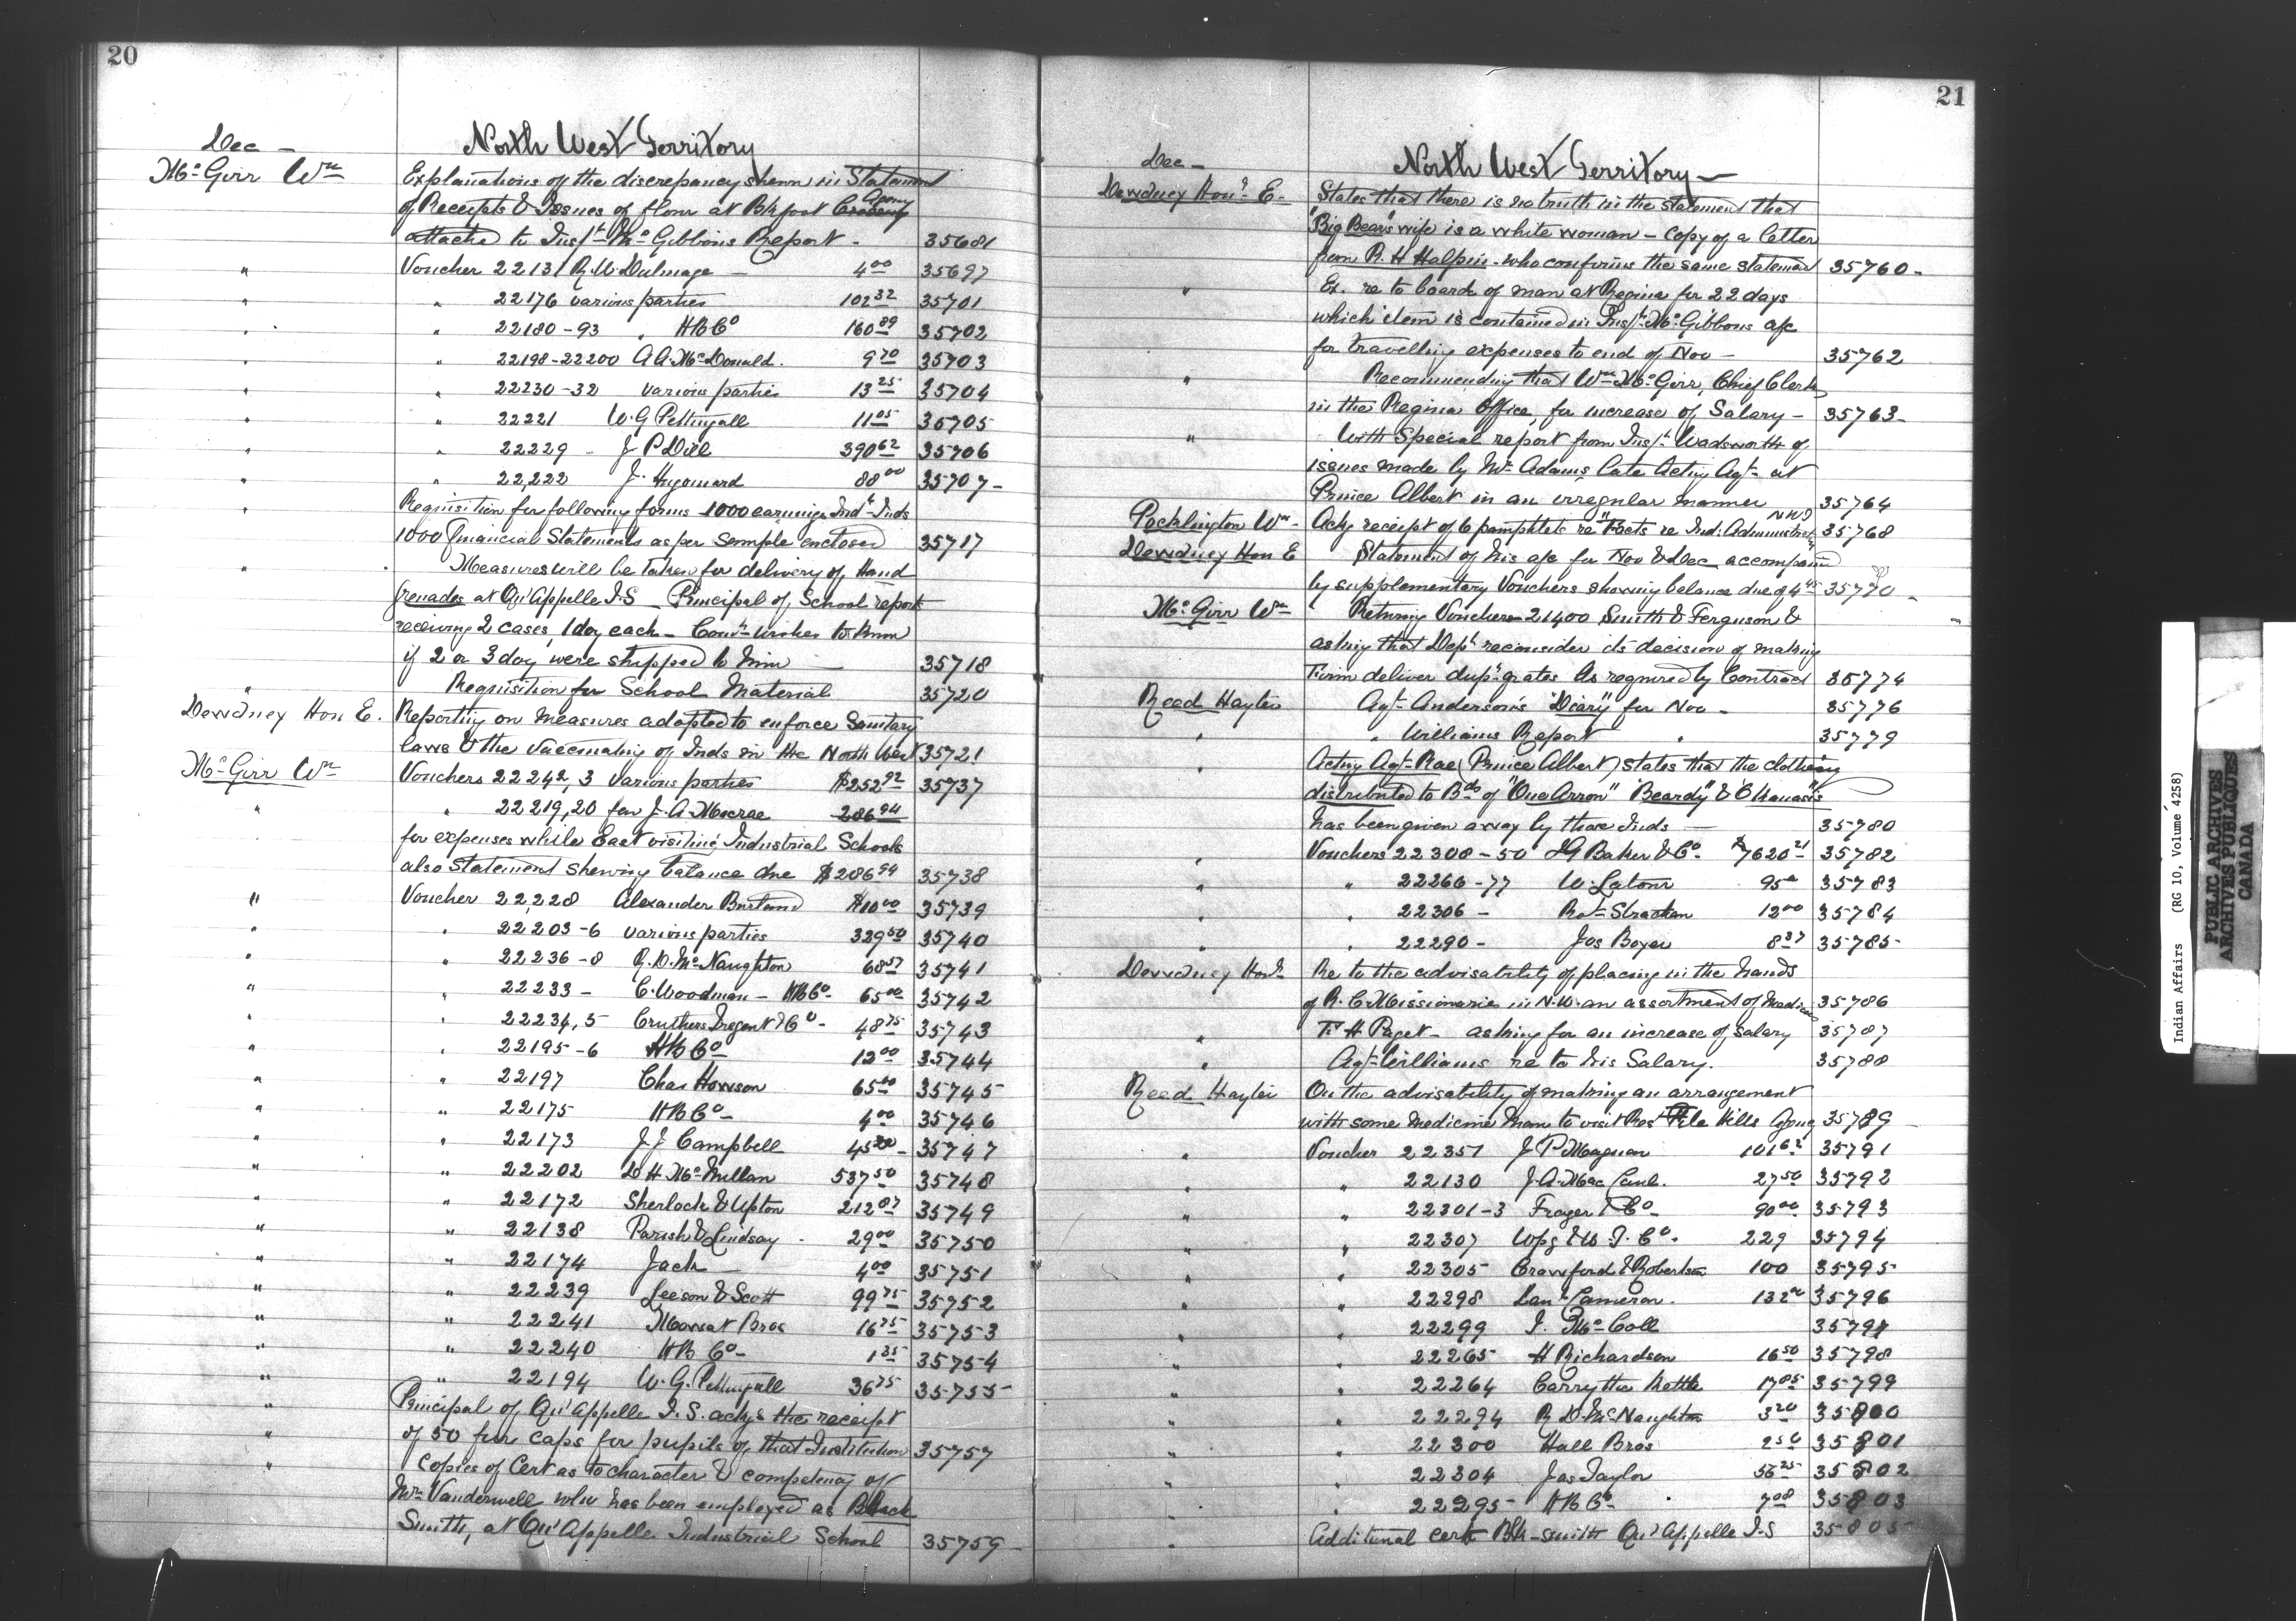 20
Dec — North West Territory
McGirr Wm Explanations of the discrepancy shewn in Statement
of Receipts & Issues of flour at Blkfoot Crossing Agency
attached to Inspt McGibbons Report - 35681
" Voucher 22131 R.W. Dulmage — 4 00 35697
" " 22176 various parties 102 32 35701
" " 22180-93 " HBCo 160 89 35702
" " 22198-22200 A A McDonald. 9 70 35703
" " 22230-32 various parties 13 25 35704
" " 22221 W.G Pettingall 11 05 35705
" " 22229 - J P Dill 390 62 35706
" " 22,222 J. 88 00 35707 -
" Requisition for following forms 1000 earnings Indl Inds
1000 Financial Statements as per sample enclosed 35717
" Measures will be taken for delivery of Hand
Grenades at Qu'Appelle I.S — Principal of School reports
receiving 2 cases, 1 doz each — Comr wishes to know
if 2 or 3 doz were shipped to him — 35718
" Requisition for School Material 35720
Dewdney Hon E. Reporting on measures adopted to enforce Sanitary
laws & the vaccinating of Inds in the North West 35721
McGirr Wm Vouchers 22242,3 various parties $252 92 35737
" " 22219,20 fav J.A. Macrae 286 94
for expenses while East visiting Industrial Schools
also statement shewing balance due $286 94 35738
" Voucher 22,228 Alexander Burland $10 00 35739
" " 22203-6 various parties 329 50 35740
" " 22236-8 R.D. McNaughton 68 57 35741
" " 22233 - C. Woodman - HBCo - 65 00 35742
" " 22234,5 Cruthers Tregent & Co - 48 75 35743
" " 22195-6 HBCo 12 00 35744
" " 22197 Chas Howson 65 00 35745
" " 22175 HBCo - 4 00 35746
" " 22173 J J Campbell 45 20 - 35747
" " 22202 D H McMillan 537 50 35748
" " 22172 Sherlock & Upton 212 87 35749
" " 22138 Parish & Lindsay - 29 00 35750
" " 22174 Jack — 4 00 35751
" " 22239 Leeson & Scott 99 75 35752
" " 22241 Mowat Bros 16 75 35753
" " 22240 HB Co - 1 35 35754
" " 22194 W.G. Pettingall 36 75 35755 -
" Principal of Qu'Appelle I.S. ackgs the receipt
" of 50 fur caps for pupils of that Institution 35757
" Copies of Cert as to character & competency of
Mr Vanderwell who has been employed as Black
Smith, at Qu'Appelle Industrial School 35759 -
21
Dec — North West Territory —
Dewdney Honl E - States that there is no truth in the statement that
"Big Bears" wife is a white woman - Copy of a letter
from R. H Halpin - who confirms the same statement 35760 -
" Ex. re to board of man at Regina for 22 days
which item is contained in Inspt McGibbons a/c
for travelling expenses to end of Nov - 35762
" Recommending that Wm McGirr, Chief Clerk
in the Regina Office, for increase of Salary - 35763 -
" With Special report from Inspt Wadsworth of
issues made by Mr Adams late Acting Agt at
Prince Albert in an irregular manner 35764
Pocklington Wm - Ackg receipt of 6 pamphlets re "Facts re Ind: Administration NWT 35768
Dewdney Hon E Statement of his a/c for Nov & Dec accompanied
by supplementary Vouchers shewing balance due of 4 45 35770 -
McGirr Wm Returning Voucher 21400 Smith & Ferguson &
asking that Dept reconsider its decision of making
Firm deliver dup. grates as required by Contract 35774
Reed Hayter Agt Anderson's "Diary" for Nov - 35776
" " Williams Report " 35779
" Acting Agt Rae (Prince Albert) states that the clothing
distributed to Bds of "One Arrow" "Beardy" & Okemasis
has been given away by those Inds — 35780
" Vouchers 22308-50 IG Baker & Co - $7620 21 35782
" " 22266-77 W. Latour 95 35783
" " 22306 - Robt Strachan 12 00 35784
" " 22290 - Jos Boyer 8 37 35785 -
Dewdney Honl Re to the advisability of placing in the hands
of R. C Missionaries in N.W. an assortment of Medicines 35786
" T. H Paget - asking for an increase of salary 35787
" Agt Williams re to his Salary. 35788
Reed Hayter On the advisability of making an arrangement
with some Medicine Man to visit File Hills Agency 35789 -
" Voucher 22351 J P Magnan 101 62 35791
" " 22130 J.A. 27 50 35792
" " 22301-3 Frazer & Co - 90 00 35793
" " 22307 Wpg & W. T. Co. 229 35794
" " 22305 Crawford & Robertson 100 35795
" " 22298 Cameron. 132 35796
" " 22299 J. McColl 35797
" " 22265 H Richardson 16 50 35798
" " 22264 Carry the Kettle 17 85 35799
" " 22294 R D. McNaughton 3 20 35800
" " 22300 Hall Bros 2 50 35801
" " 22304 Jas Taylor 56 25 35802
" " 22295 HBCo - 7 08 35803
" Additional cert Blk-smith Qu'Appelle I.S 35805
Indian Affairs (RG 10, Volume 4258)
PUBLIC ARCHIVES
ARCHIVES PUBLIQUES
CANADA